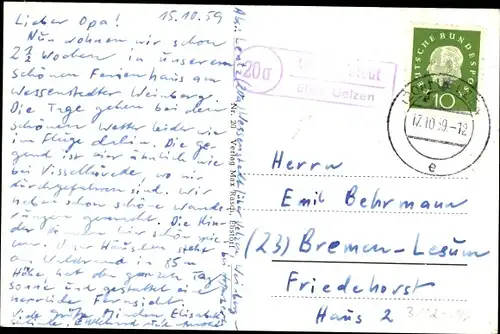 Lieber Opa! 15.10.59
Nun wohnen wir schon
2½ Wochen in unserem
schönen Ferienhaus am
Wessenstedter Weinberg.
Die Tage gehen bei dem
schönen Wetter leider wie
im Fluge dahin. Die Ge-
gend ist hier ähnlich wie
bei Visselhövede, wo wir
durchgefahren sind. Wir
haben schon schöne Wande-
rungen gemacht. Die Kin-
der können hier schön spie-
len. Unser Häuschen steht
am Waldrand in 85 m
Höhe, hat den ganzen Tag
Sonne und gestattet eine
herrliche Fernsicht.
Viele Grüße Minchen, Elisabeth
Nr. 20 Verlag Max
20a
über Uelzen
DEUTSCHE BUNDESPOST
10
17.10.59.-12
e
Herrn
Emil Behrmann
(23) Bremen-Lesum
Friedehorst
Haus 2